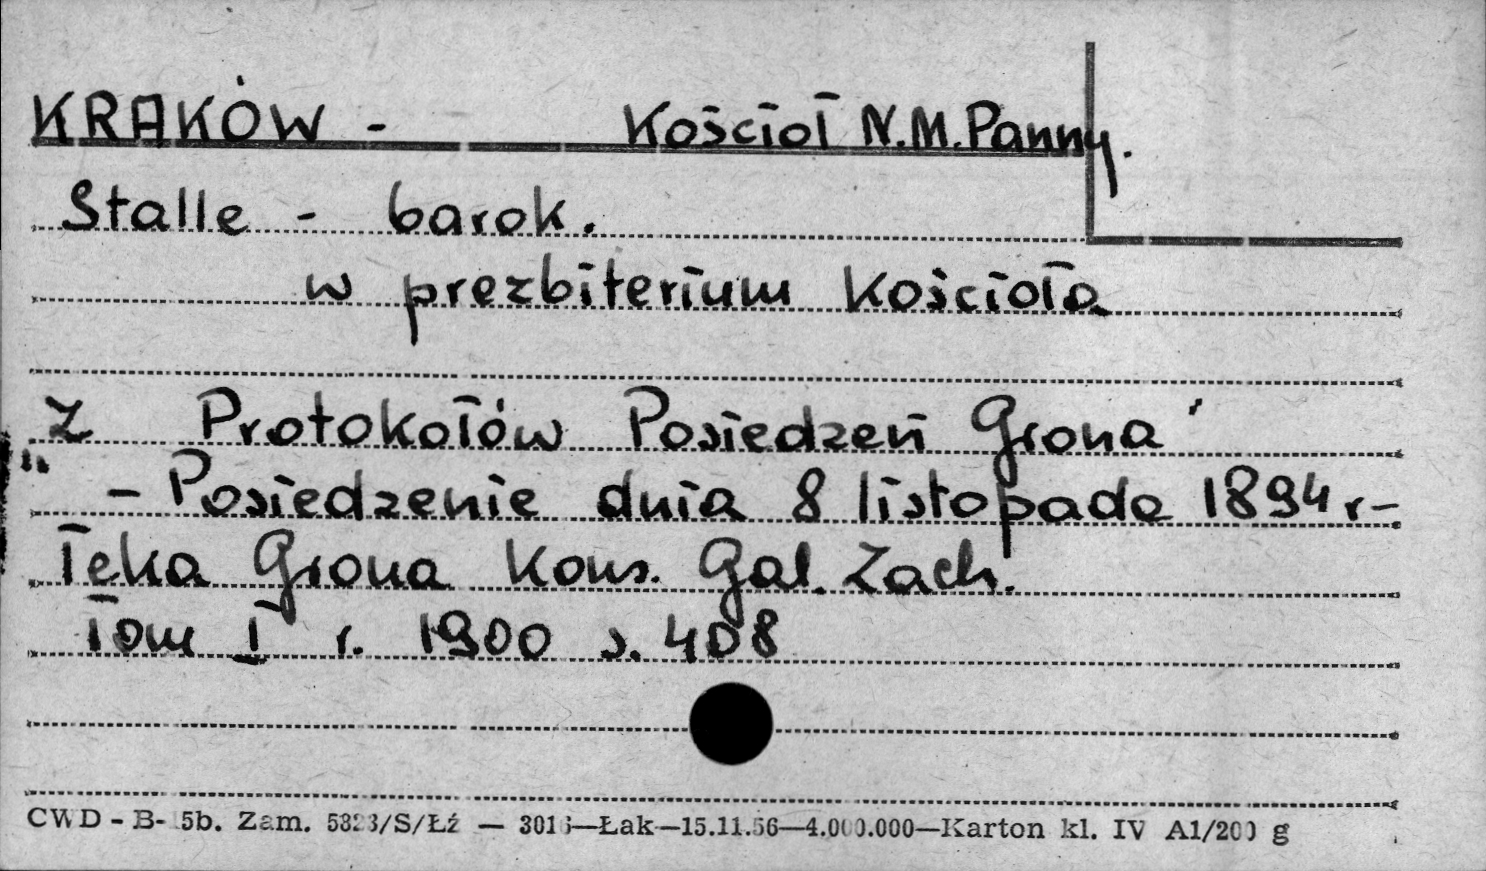 KRAKÓW - Kościoł N.M.Panny.
Stalle - barok.
w prezbiterium Kościoła
Z Protokołów Posiedzeń Grona
" - Posiedzenie dnia 8 listopada 1894 r-
Teka Grona Kons. Gal. Zach.
Tom I r. 1900 s. 408
CWD - B- 5b. Zam. 5823/S/Łź — 3016—Łak—15.11.56—4.000.000—Karton kl. IV A1/200 g